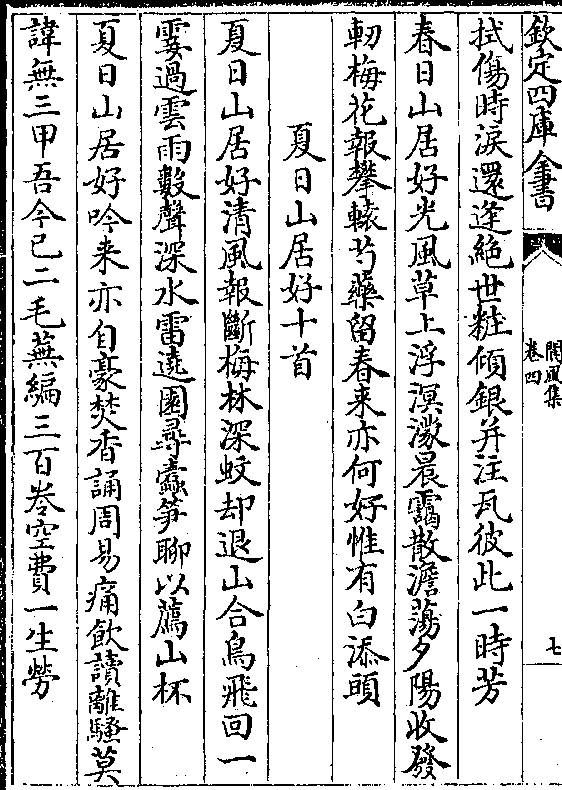 欽定四庫全書
閬風集
卷四
七
拭傷時淚還逢絶世粧傾銀并注瓦彼此一時芳
春日山居好光風草上浮溟濛晨靄散澹蕩夕陽收發
軔梅花報攀轅芍藥留春来亦何好惟有白添頭
夏日山居好十首
夏日山居好清風報斷梅林深蚊却退山合鳥飛回一
霎過雲雨數聲深水雷遶園尋蠧笋聊以薦山杯
夏日山居好吟来亦自豪焚香誦周易痛飲讀離騷莫
諱無三甲吾今已二毛蕪編三百卷空費一生勞